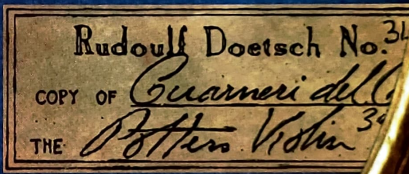 Rudoulf Doetsch No.
COPY OF Guarneri del
THE Potters Violin